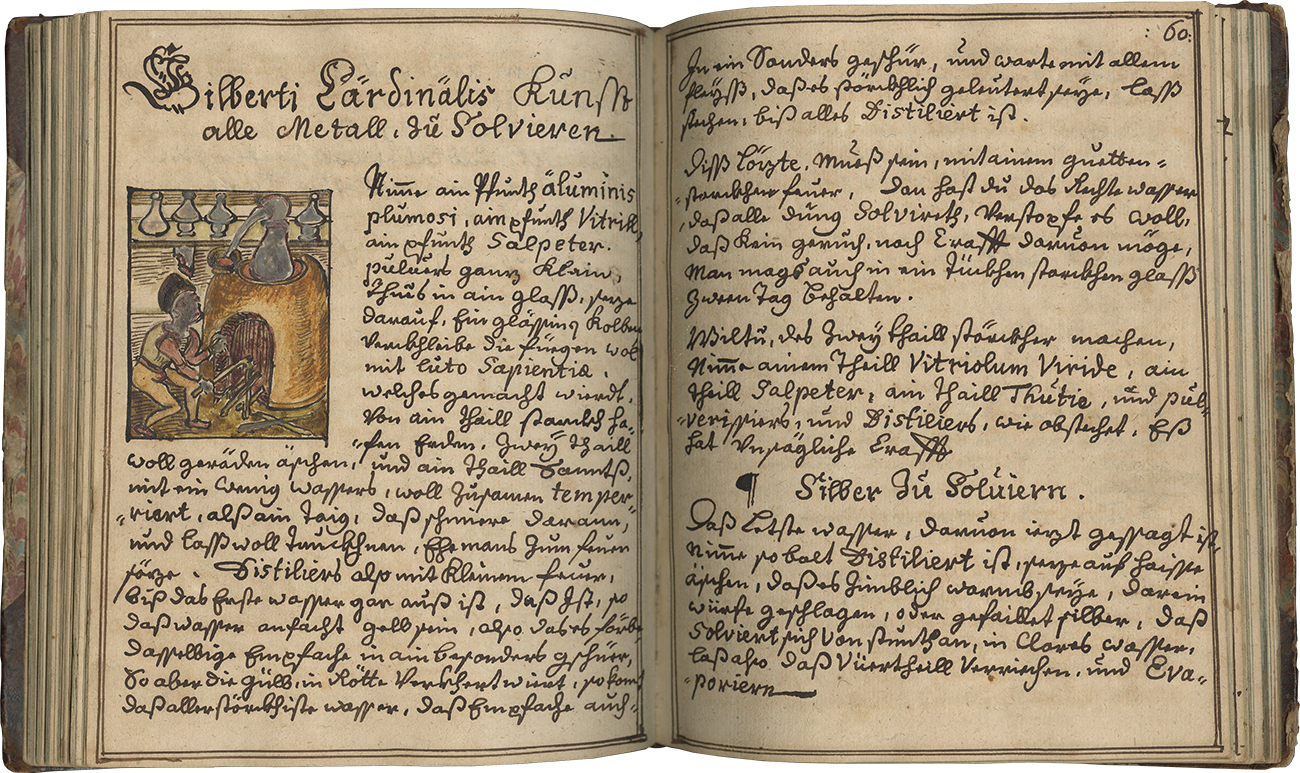 Gilberti Cärdinälis Kunst
alle Metall, zů Solvieren.
Nim̄e ain Pfunth äluminis
plumosi, ain pfunth Vitrill,
ain pfunth Salpeter.
puluers ganz klain,
Thuͦs in ain glaß, seze
darauf, Ein glässing Kolben
Verckhleibe die fuegen wol
mit luto Sapientiæ.
welches gemacht wierdt,
Von ain Thaill starckh ha-
-fen Erden, Zwey Thaill
woll geräden äschen, und ain Thaill
mit ein wenig wassers, woll Zusamen temper-
-riert, alß ain Taig, daß schmiere darann,
und laß woll Truckhnen, Ehe mans zum feuer
sezze. Distiliers also mit kleinem feuer,
biß das Erste wasser gar auß ist, daß Ist, so
daß wasser anfacht gelb sein, also das es färbe
dasselbige Empfache in ain besonders gschür,
So aber die gülb, in Rötte Verkhert wiert, so komt
daß aller störckhiste wasser, daß Empfache auch
: 60:
In ein Sonders geschür, und warte mit allem
fleyß, daß es störckhlich geleutert seye, laß
stechen, biß alles Distiliert ist.
Diß Lözte, Mueß sein, mit ainem guetten
-storckhen feuer, Dan hast du das Rechte wasser
-daß alle düng Solvireth, Verstopfe es woll,
daß kein geruch, noch Crafft daruon möge,
Man mags auch in ein Dickhen starckhen glaß
Zween Tag behalten.
Wiltu, des Zwey Thaill störckher machen,
Nim̄e ainem Theill Vitriolum Viride, ain
Theill Salpeter, ain Thaill Thutie, und pul-
-verissiers, und Distiliers, wie obstehet, Eß
hat Vnsägliche Crafft
¶ Silber Zu Soluiern.
Daß Letste wasser, daruon iezt gessagt ist,
Nim̄e so balt Distiliert ist, seze auf haisse
äschen, daß es Zimblich warmb seye, darein
würfe geschlagen, oder gefaillet silber, daß
Solviert sich Von stundt an, in Clares wasser,
laß also daß Viertheill Verriechen, und Eva-
-poriern